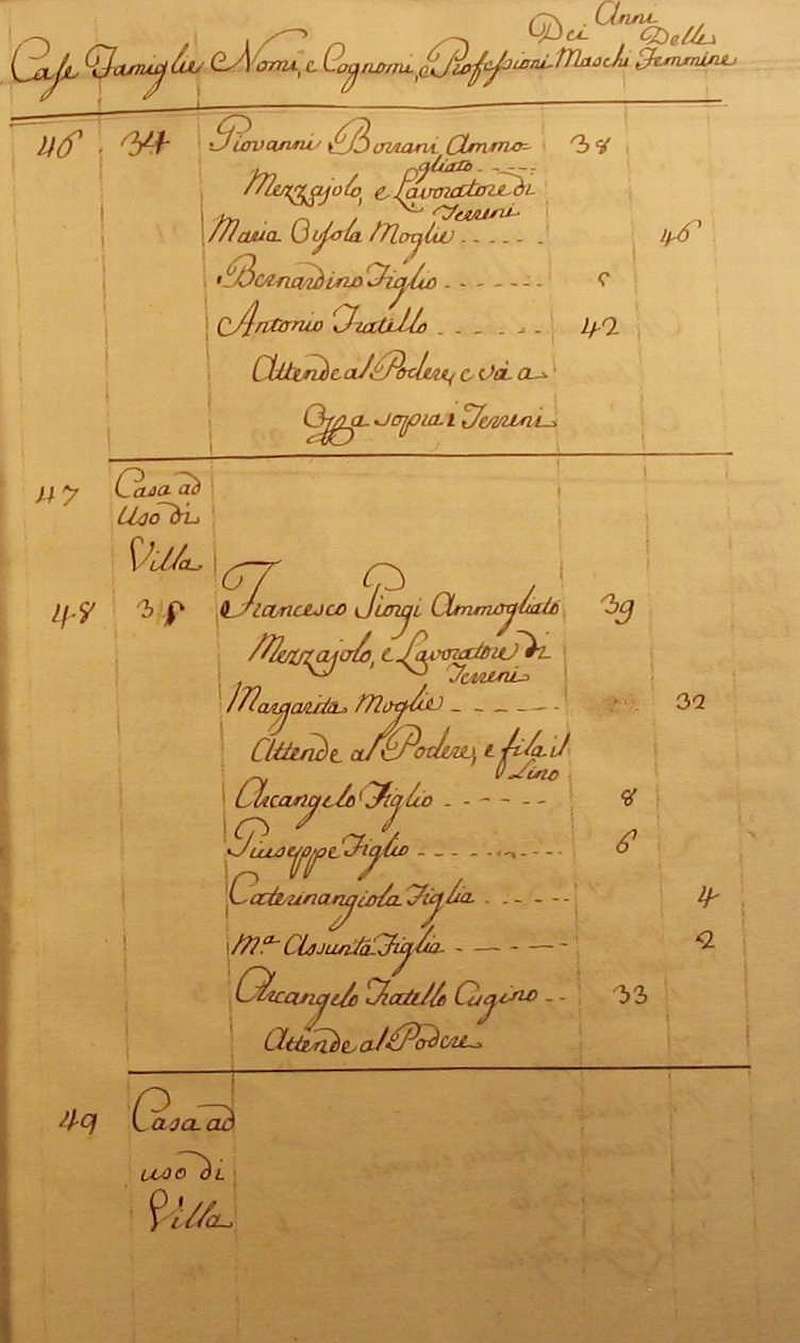 Anni
Dei Delle
Case Famiglie Nomi, e Cognomi, e Professioni Maschi Femmine
46 34 Giovanni Bonani Ammo= 38
gliato
Mezzajolo, e Lavoratore di
Terreni
Maria Orsola Moglie 46
Bernardino Figlio
Antonio Fratello 42
Attende al Podere, e và a
Opra sopra i Terreni
47 Casa ad
Uso di
Villa
48 Francesco Giorgi Ammogliato 39
Mezzajolo, e Lavoratore di
Terreni
Margarita Moglie 32
Attende al Podere, e fila il
Lino
Arcangelo Figlio 8
Giuseppe Figlio 6
Caterinangiola Figlia 4
M.a Assunta Figlia 2
Arcangelo Fratello Cugino 33
Attende al Podere
49 Casa ad
uso di
Villa